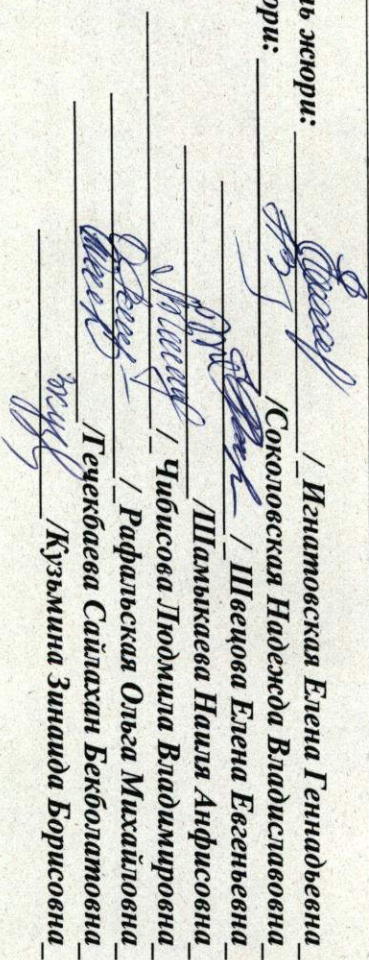 ль жюри: / Игнатовская Елена Геннадьевна
юри: /Соколовская Надежда Владиславовна
/ Швецова Елена Евгеньевна
/Шамыкаева Наиля Анфисовна
/ Чибисова Людмила Владимировна
/ Рафальская Ольга Михайловна
/Гечекбаева Сайлахан Бекболатовна
/Кузьмина Зинаида Борисовна